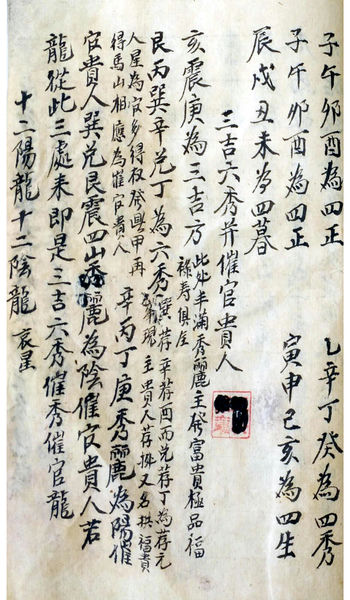 子午卯酉為四正
乙辛丁癸為四秀
子午卯酉為四正
寅申己亥為四生
辰戌丑未為四暮
三吉六秀并催官貴人
亥震庚為三吉方
此处丰滿秀麗主發富貴極品福
祿寿俱全
艮丙巽辛兑丁為六秀
辛荐丙而兑荐丁為荐元
人星為官多得权發與甲再
主貴人荐擢又名拱福貴
得馬山相應為催官貴人
辛丙丁庚秀麗為陽催
官貴人巽兑艮震四山秀麗為陰催官貴人若
龍從此三處来即是三吉六秀催秀催官龍
十二陽龍十二陰龍
哀星